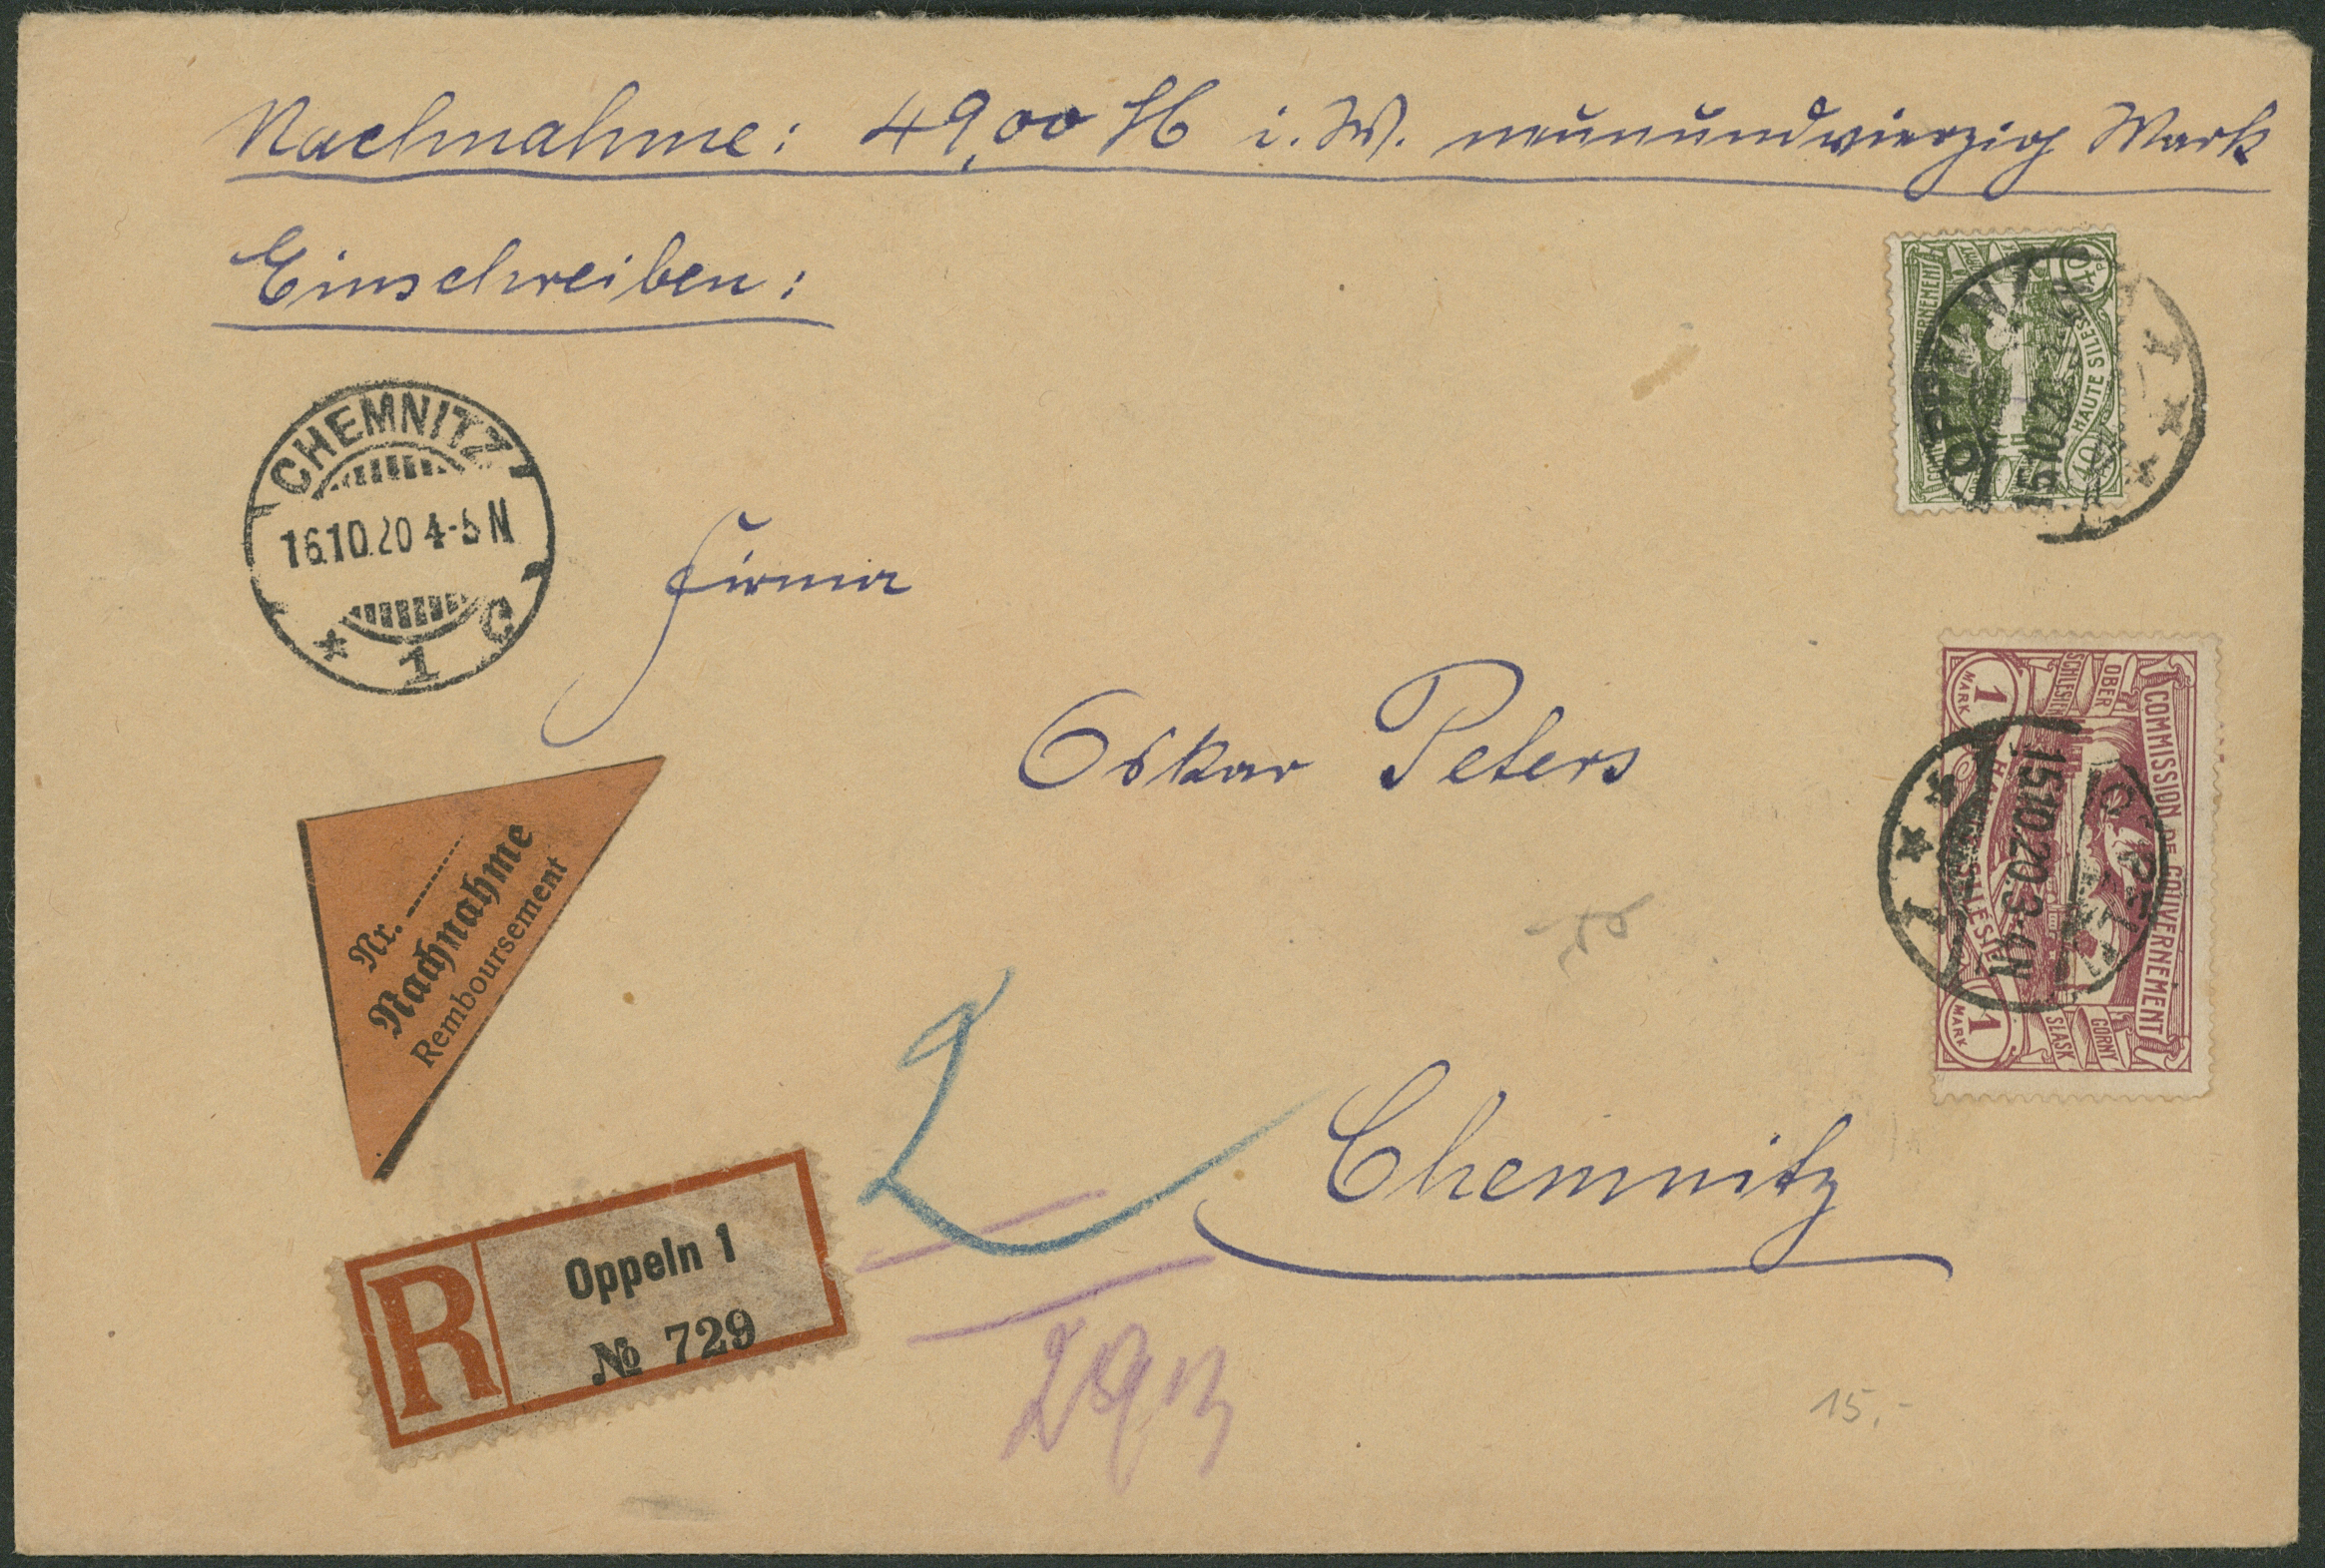 Nachnahme: 49,00 M i. W. neunundvierzig Mark
Einschreiben:
COMMISSION DE GOUVERNEMENT
HAUTE SILESIE
40
OPPELN
15.10.20
CHEMNITZ
16.10.20 4-5 N
* 1 C
Firma
Oskar Peters
OBER
SCHLESIEN
COMMISSION DE GOUVERNEMENT
HAUTE SILESIE
GORNY
SLASK
1
MARK
1
MARK
OPPELN
15.10.20.3-4N
* 1 *
Nr.
Nachnahme
Remboursement
2
Chemnitz
R
Oppeln 1
№ 729
15.-